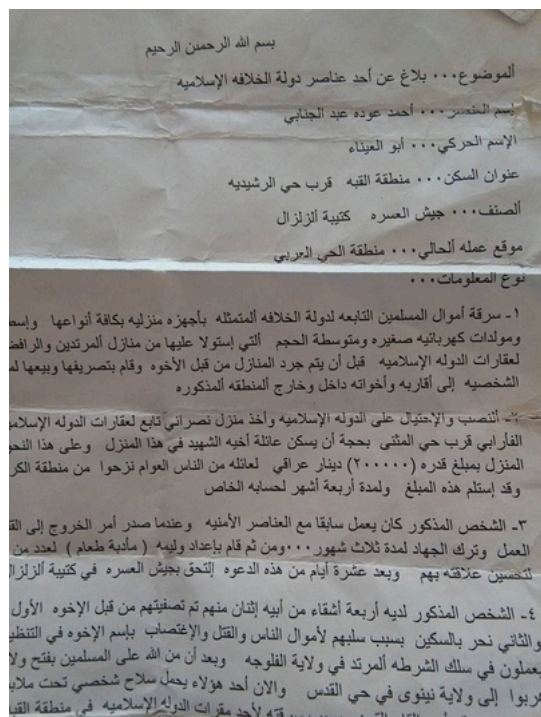 بسم الله الرحمن الرحيم
ألموضوع... بلاغ عن أحد عناصر دولة الخلافه الإسلاميه
إسم العنصر... أحمد عوده عبد الجنابي
الإسم الحركي... أبو العيناء
عنوان السكن... منطقة القبه قرب حي الرشيديه
ألصنف... جيش العسره كتيبة ألزلزال
موقع عمله ألحالي... منطقة الحي العربي
نوع المعلومات...
١- سرقة أموال المسلمين التابعه لدولة الخلافه ألمتمثله بأجهزه منزليه بكافة أنواعها
ومولدات كهربائيه صغيره ومتوسطة الحجم ألتي إستولا عليها من منازل ألمرتدين
لعقارات الدوله الإسلاميه قبل أن يتم جرد المنازل من قبل الأخوه وقام بتصريفها وبيعها
الشخصيه إلى أقاربه وأخواته داخل وخارج ألمنطقه ألمذكوره
٢- ألنصب والإحتيال على الدوله الإسلاميه وأخذ منزل نصراني تابع لعقارات الدوله
الفأرابي قرب حي المثنى بحجة أن يسكن عائلة أخيه الشهيد في هذا المنزل وعلى هذا
المنزل بمبلغ قدره (٢٠٠٠٠٠) دينار عراقي لعائله من الناس العوام نزحوا من منطقة
وقد إستلم هذه المبلغ ولمدة أربعة أشهر لحسابه الخاص
٣- الشخص المذكور كان يعمل سابقا مع العناصر الأمنيه وعندما صدر أمر الخروج إلى
العمل وترك الجهاد لمدة ثلاث شهور...ومن ثم قام بإعداد وليمه (مأدبة طعام) لعدد من
لتحسين علاقته بهم وبعد عشرة أيام من هذه الدعوه إلتحق بجيش العسره في كتيبة ألزلزال
٤- الشخص المذكور لديه أربعة أشقاء من أبيه إثنان منهم تم تصفيتهم من قبل الإخوه الأول
والثاني نحر بالسكين بسبب سلبهم لأموال الناس والقتل والإغتصاب بإسم الإخوه في
يعملون في سلك الشرطه ألمرتد في ولاية الفلوجه وبعد أن من الله على المسلمين بفتح
إلى ولاية نينوى في حي القدس والان أحد هؤلاء يحمل سلاح شخصي تحت
لأحد مقرات الدوله الإسلاميه في منطقة